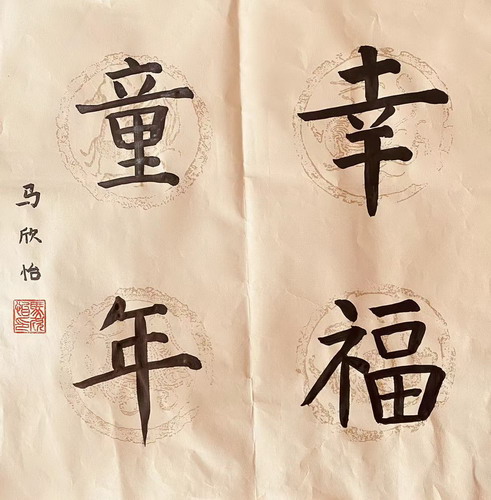 幸福
童年
马欣怡